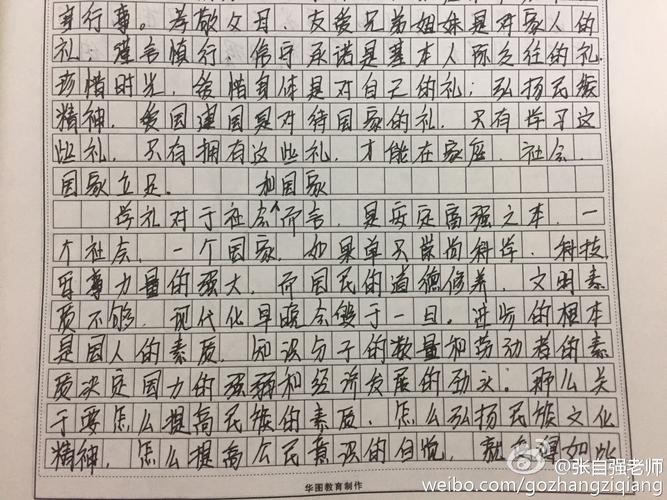 身行事。孝敬父母，友爱兄弟姐妹是对家人的
礼；谨言慎行，信守承诺是基本人际交往的礼
珍惜时光，爱惜身体是对自己的礼；弘扬民族
精神，爱国建国是对待国家的礼。只有学习这
些礼，只有拥有这些礼，才能在家庭、社会、
国家立足。 和国家
学礼对于社会∧而言，是安定富强之本。一
个社会，一个国家，如果单只崇尚科学、科技，
至尊力量的强大，而国民的道德修养、文明素
质不够，现代化早晚会毁于一旦。进步的根本
是国人的素质，知识分子的数量和劳动者的素
质决定国力的强弱和经济发展的动力。那么关
于要怎么提高民族的素质，怎么弘扬民族文化
精神，怎么提高公民意识的自觉，就在得如此
华图教育制作
@张自强老师
weibo.com/gozhangziqiang